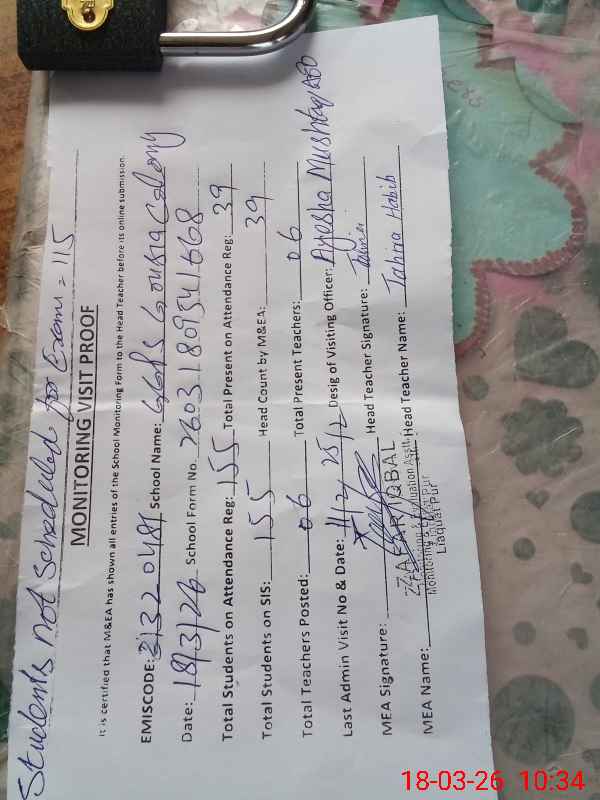 Students not Scheduled for Exam = 115
MONITORING VISIT PROOF
It is certified that M&EA has shown all entries of the School Monitoring Form to the Head Teacher before its online submission.
EMISCODE: 31320481 School Name: GGPS Gousia Colony
Date: 18/3/26 School Form No. 26031809341668
Total Students on Attendance Reg: 155 Total Present on Attendance Reg: 39
Total Students on SIS: 155 Head Count by M&EA: 39
Total Teachers Posted: 06 Total Present Teachers: 06
Last Admin Visit No & Date: 25/2 Desig of Visiting Officer: Ayesha Mushtaq AEO
MEA Signature: Head Teacher Signature:
MEA Name: Head Teacher Name: Tahira Habib
ZAFAR IQBAL
Monitoring & Evaluation Asstt.
Liaquat Pur
18-03-26 10:34